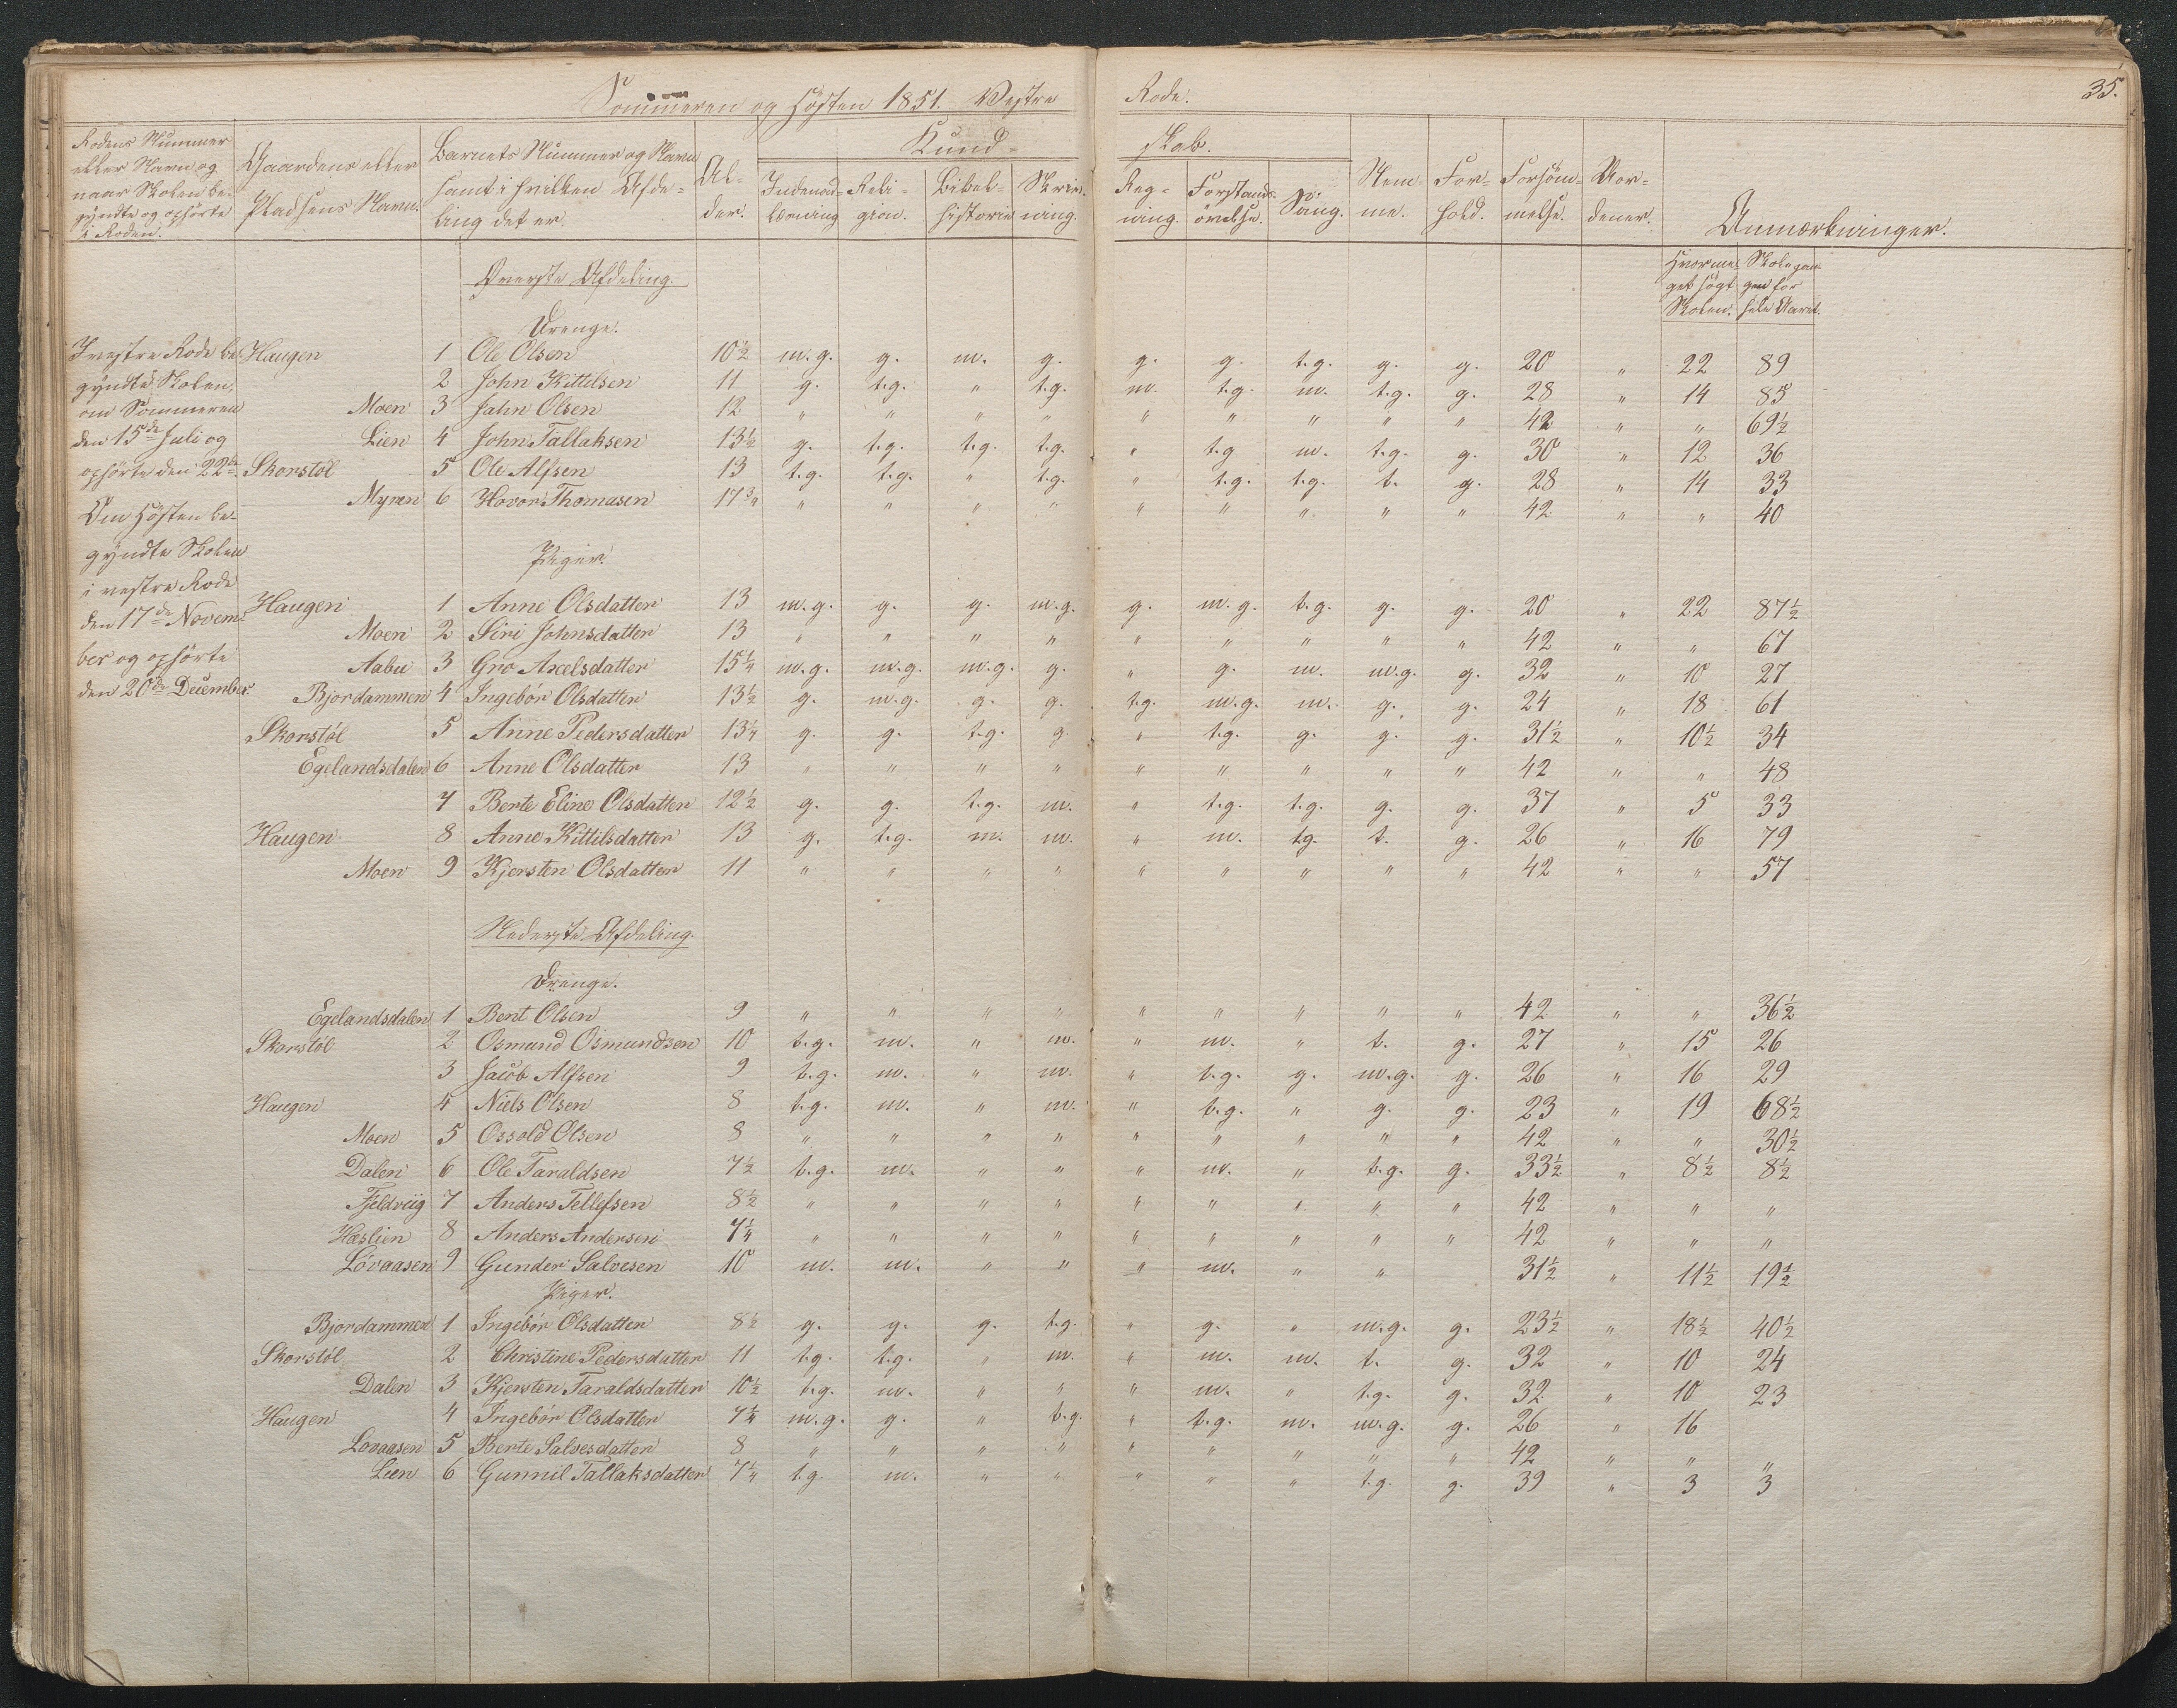 Sommeren og Høsten 1851. Vestre Rode. 35.
Rodens Nummer eller Navn og naar Skolen begyndte og ophørte i Roden. | Gaardens eller Pladsens Navn. | Barnets Nummer og Navn samt i hvilken Afdeling det er. | Alder. | Kundskab. | Indenadlæsning | Religion. | Bibelhistorie | Skrivning. | Regning. | Forstandsøvelse. | Sang. | Nemme. | Forhold. | Forsømmelse. | Anmærkninger.
Skolen. | hele Aaret.
Øverste Afdeling.
Drenge.
I vestre Rode begyndte Skolen om Sommeren den 15de Juli og ophørte den 22de
Om Høsten begyndte Skolen i vestre Rode den 17de November og ophørte den 20de December.
Haugen 1 Ole Olsen 10½ m.g. g. m. g. g. g. t.g. g. g. 20 " 22 89
2 John Kittilsen 11 g. t.g. " t.g. m. t.g. m. t.g. g. 28 " 14 85
Moen 3 Jahn Olsen 12 " " " " " " " " " 42 " " 69½
Lien 4 John Tallaksen 13½ g. t.g. t.g. t.g. " t.g m. t.g. g. 30 " 12 36
Skorstøl 5 Ole Alfsen 13 t.g. t.g. " t.g. " t.g. t.g. t. g. 28 " 14 33
Myren 6 Hovor Thomasen 17¾ " " " " " " " " " 42 " " 40
Piger.
Haugen 1 Anne Olsdatter 13 m.g. g. g. m.g. g. m.g. t.g. g. g. 20 " 22 87½
Moen 2 Siri Johnsdatter 13 " " " " " " " " " 42 " " 67
Aabu 3 Gro Axelsdatter 15¼ m.g. m.g. m.g. g. " g. m. m.g. g. 32 " 10 27
Bjordammen 4 Ingebor Olsdatter 13½ g. m.g. g. g. t.g. m.g. m. g. g. 24 " 18 61
Skorstøl 5 Anne Pedersdatter 13¼ g. g. t.g. g. " t.g. g. g. g. 31½ " 10½ 34
Egelandsdalen 6 Anne Olsdatter 13 " " " " " " " " " 42 " " 48
7 Berte Eline Olsdatter 12½ g. g. t.g. m. " t.g. t.g. g. g. 37 " 5 33
Haugen 8 Anne Kittilsdatter 13 g. t.g. m. m. " m. tg. t. g. 26 " 16 79
Moen 9 Kjersten Olsdatter 11 " " " " " " " " " 42 " " 57
Nederste Afdeling.
Drenge.
Egelandsdalen 1 Bent Olsen 9 " " " " " " " " " 42 " " 36½
Skorstøl 2 Osmund Osmundsen 10 t.g. m. " m. " m. " t. g. 27 " 15 26
3 Jacob Alfsen 9 t.g. m. " m. " t.g. g. m.g. g. 26 " 16 29
Haugen 4 Niels Olsen 8 t.g. m. " m. " t.g. " g. g. 23 " 19 68½
Moen 5 Ossold Olsen 8 " " " " " " " " " 42 " " 30½
Dalen 6 Ole Taraldsen 7½ t.g. m. " " " m. " t.g. g. 33½ " 8½ 8½
Fjeldviig 7 Anders Tellefsen 8½ " " " " " " " " " 42 " " "
Heslien 8 Anders Andersen 7¼ " " " " " " " " " 42 " " "
Løvaasen 9 Gunder Salvesen 10 m. m. " " " m. " " 31½ " 11½ 19½
Piger.
Bjordammen 1 Ingebør Olsdatter 8½ g. g. g. t.g. " g. " m.g. g. 23½ " 18½ 40½
Skorstøl 2 Christine Pedersdatter 11 t.g. t.g. " m. " m. m. t. g. 32 " 10 24
Dalen 3 Kjersten Taraldsdatter 10½ t.g. m. " " " m. " t.g. g. 32 " 10 23
Haugen 4 Ingebór Olsdatter 7¼ m.g. g. " t.g. " t.g. m. m.g. g. 26 " 16
Lovaasen 5 Berte Salvesdatter 8 " " " " " " " " " 42 " " "
Lien 6 Gunnil Tallaksdatter 7¼ t.g. m. " " " " " t.g. g. 39 " 3 3